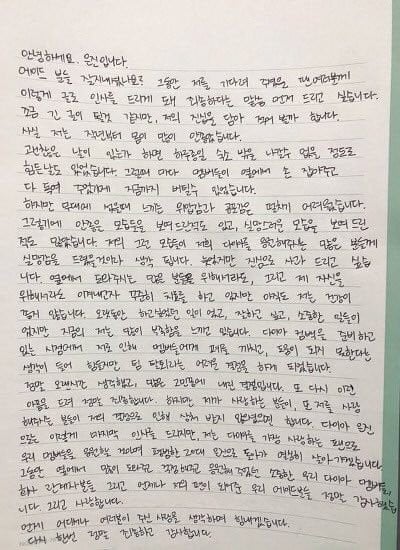 안녕하세요. 은진입니다.
에이드 분들 잘지내셨나요? 그동안 저를 기다려 주셨을 팬 여러분께
이렇게 글로 인사를 드리게 돼 죄송하다는 말씀 먼저 드리고 싶습니다.
조금 긴 글이 될것 같지만, 저의 진심을 담아 적어 볼까 합니다.
사실 저는 작년부터 몸이 많이 안좋았습니다.
괜찮은 날이 있는가 하면 하루종일 숙소 밖을 나갈수 없을 정도로
힘든날도 있었습니다. 그럴때 마다 멤버들이 옆에서 손 잡아주고
다독여 주었기에 지금까지 버틸수 있었습니다.
하지만 무대에 섰을때 느끼는 위압감과 공포감은 떨치기 어려웠습니다.
그렇기에 안좋은 모습들을 보여드린적도 있고, 실망스러운 모습을 보여 드린
적도 많았습니다. 저의 그런 모습이 저희 다이아를 응원해주는 많은 분들께
실망감을 드렸을거라 생각 됩니다. 늦었지만 진심으로 사과 드리고 싶습
니다. 옆에서 도와주시는 많은 분들을 위해서라도, 그리고 제 자신을
위해서라도 이겨내고자 꾸준히 치료를 하고 있지만 아직도 저는 건강이
좋지 않습니다. 오랫동안 하고싶었던 일이 었고, 잘하고 싶고, 소중한 일들이
었지만 지금의 저는 많이 부족함을 느끼고 있습니다. 다이아 컴백을 준비 하고
있는 시점에서 저로 인해 멤버들에게 폐를 끼치고, 도움이 되지 못한다는
생각이 들어 힘들지만 팀 탈퇴라는 어려운 결정을 하게 되었습니다.
정말 오랜시간 생각했고, 많은 고민끝에 내린 결정입니다. 또 다시 이런
아픔을 드려 정말 죄송합니다. 하지만 제가 사랑하는 분들이, 또 저를 사랑
해주시는 분들이 저의 결정으로 인해 상처 받지 않으셨으면 합니다. 다이아 은진
으로는 이렇게 마지막 인사를 드리지만, 저는 다이아를 가장 사랑하는 팬으로
우리 멤버들을 응원할 것이며 평범한 20대 은진으로 돌아가 열심히 살아가겠습니다.
그동안 옆에서 많이 도와주고 걱정해주고 응원해주었던 소중한 우리 다이아 멤버들,
회사 관계자분들 그리고 언제나 저의 편이 되어준 우리 에이드분들 정말 감사했습
니다. 그리고 사랑합니다.
언제 어디에나 여러분이 주신 사랑을 생각하며 힘내겠습니다.
다시 한번 정말 죄송하고 감사합니다.